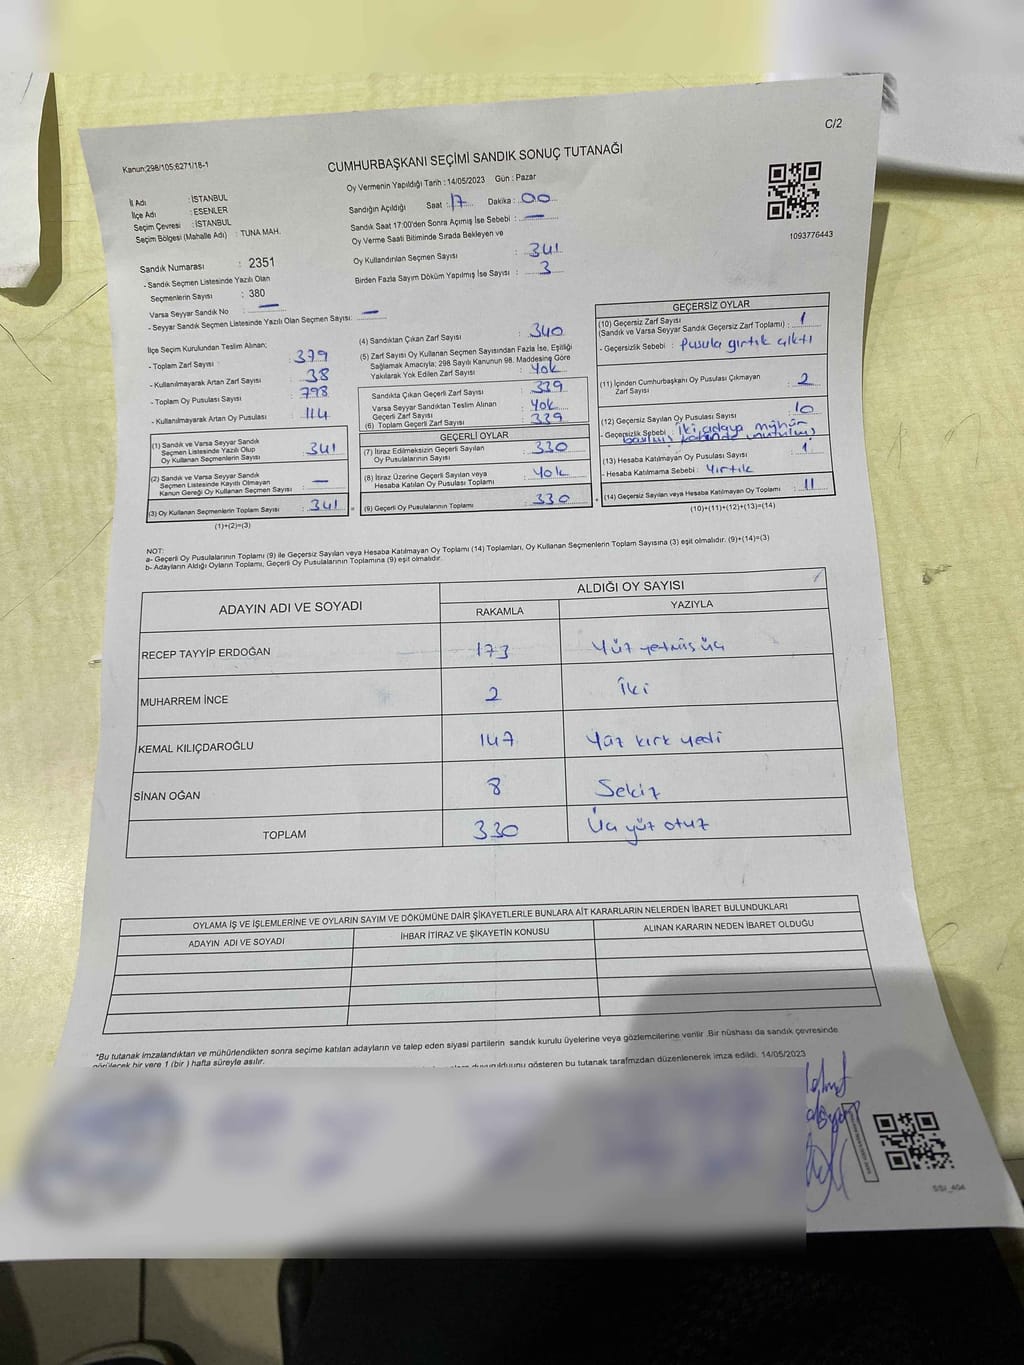 C/2
Kanun;298/105;6271/18-1
CUMHURBAŞKANI SEÇİMİ SANDIK SONUÇ TUTANAĞI
Oy Vermenin Yapıldığı Tarih : 14/05/2023 Gün : Pazar
İl Adı : İSTANBUL
İlçe Adı : ESENLER
Seçim Çevresi : İSTANBUL
Seçim Bölgesi (Mahalle Adı) : TUNA MAH.
Sandığın Açıldığı Saat : 17 Dakika : 00
Sandık Saat 17:00'den Sonra Açılmış İse Sebebi : —
Oy Verme Saati Bitiminde Sırada Bekleyen ve
Oy Kullandırılan Seçmen Sayısı : 341
Birden Fazla Sayım Döküm Yapılmış İse Sayısı : 3
1093776443
Sandık Numarası : 2351
- Sandık Seçmen Listesinde Yazılı Olan
Seçmenlerin Sayısı : 380
Varsa Seyyar Sandık No : —
- Seyyar Sandık Seçmen Listesinde Yazılı Olan Seçmen Sayısı: —
İlçe Seçim Kurulundan Teslim Alınan;
- Toplam Zarf Sayısı : 379
- Kullanılmayarak Artan Zarf Sayısı : 38
- Toplam Oy Pusulası Sayısı : 798
- Kullanılmayarak Artan Oy Pusulası : 114
(1) Sandık ve Varsa Seyyar Sandık
Seçmen Listesinde Yazılı Olup
Oy Kullanan Seçmenlerin Sayısı : 341
(2) Sandık ve Varsa Seyyar Sandık
Seçmen Listesinde Kayıtlı Olmayan
Kanun Gereği Oy Kullanan Seçmen Sayısı : —
(3) Oy Kullanan Seçmenlerin Toplam Sayısı : 341
(1)+(2)=(3)
(4) Sandıktan Çıkan Zarf Sayısı : 340
(5) Zarf Sayısı Oy Kullanan Seçmen Sayısından Fazla İse, Eşitliği
Sağlamak Amacıyla; 298 Sayılı Kanunun 98. Maddesine Göre
Yakılarak Yok Edilen Zarf Sayısı : Yok
Sandıkta Çıkan Geçerli Zarf Sayısı : 339
Varsa Seyyar Sandıktan Teslim Alınan
Geçerli Zarf Sayısı : Yok
(6) Toplam Geçerli Zarf Sayısı : 339
GEÇERLİ OYLAR
(7) İtiraz Edilmeksizin Geçerli Sayılan
Oy Pusulalarının Sayısı : 330
(8) İtiraz Üzerine Geçerli Sayılan veya
Hesaba Katılan Oy Pusulası Toplamı : Yok
(9) Geçerli Oy Pusulalarının Toplamı : 330
GEÇERSİZ OYLAR
(10) Geçersiz Zarf Sayısı
(Sandık ve Varsa Seyyar Sandık Geçersiz Zarf Toplamı) : 1
- Geçersizlik Sebebi : Pusula yırtık çıktı
(11) İçinden Cumhurbaşkanı Oy Pusulası Çıkmayan
Zarf Sayısı : 2
(12) Geçersiz Sayılan Oy Pusulası Sayısı : 10
- Geçersizlik Sebebi : İki adaya mühür
basılmış kabinde unutulmuş
(13) Hesaba Katılmayan Oy Pusulası Sayısı : 1
- Hesaba Katılmama Sebebi : Yırtık
(14) Geçersiz Sayılan veya Hesaba Katılmayan Oy Toplamı : 11
(10)+(11)+(12)+(13)=(14)
NOT:
a- Geçerli Oy Pusulalarının Toplamı (9) ile Geçersiz Sayılan veya Hesaba Katılmayan Oy Toplamı (14) Toplamları, Oy Kullanan Seçmenlerin Toplam Sayısına (3) eşit olmalıdır. (9)+(14)=(3)
b- Adayların Aldığı Oyların Toplamı, Geçerli Oy Pusulalarının Toplamına (9) eşit olmalıdır.
ADAYIN ADI VE SOYADI ALDIĞI OY SAYISI
RAKAMLA YAZIYLA
RECEP TAYYİP ERDOĞAN 173 Yüz yetmiş üç
MUHARREM İNCE 2 İki
KEMAL KILIÇDAROĞLU 147 Yüz kırk yedi
SİNAN OĞAN 8 Sekiz
TOPLAM 330 Üç yüz otuz
OYLAMA İŞ VE İŞLEMLERİNE VE OYLARIN SAYIM VE DÖKÜMÜNE DAİR ŞİKAYETLERLE BUNLARA AİT KARARLARIN NELERDEN İBARET BULUNDUKLARI
ADAYIN ADI VE SOYADI İHBAR İTİRAZ VE ŞİKAYETİN KONUSU ALINAN KARARIN NEDEN İBARET OLDUĞU
*Bu tutanak imzalandıktan ve mühürlendikten sonra seçime katılan adayların ve talep eden siyasi partilerin sandık kurulu üyelerine veya gözlemcilerine verilir .Bir nüshası da sandık çevresinde
görülecek bir yere 1 (bir ) hafta süreyle asılır.
duyurulduunu gösteren bu tutanak tarafmzdan düzenlenerek imza edildi. 14/05/2023